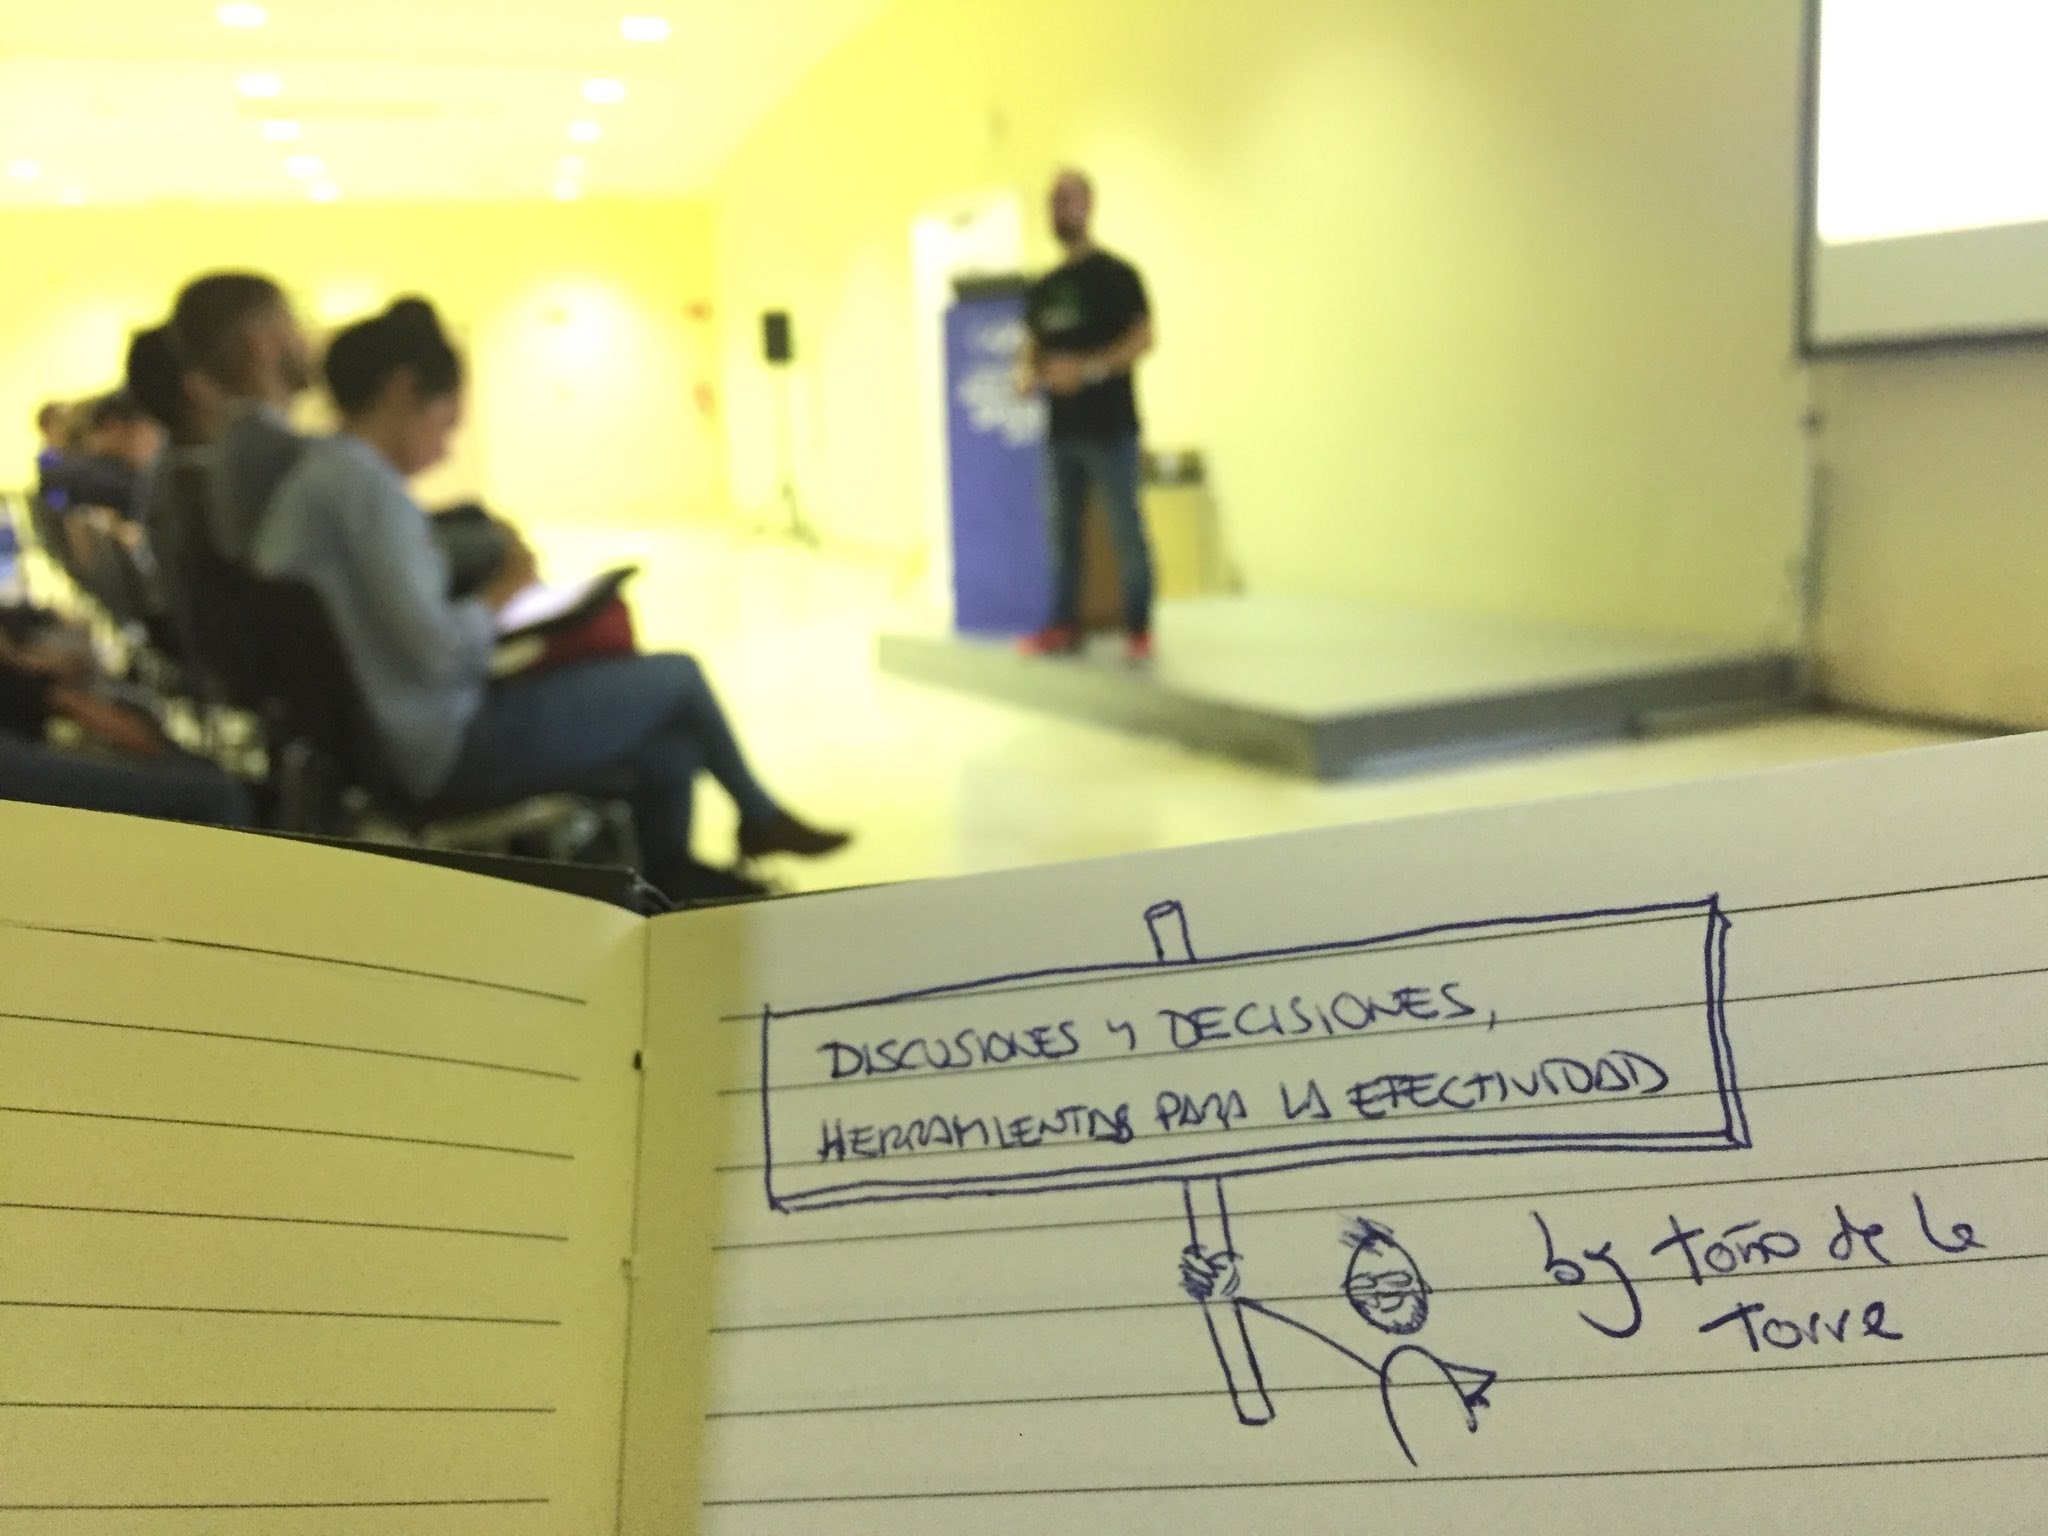 DISCUSIONES Y DECISIONES,
HERRAMIENTAS PARA LA EFECTIVIDAD
by Toño de la
Torre